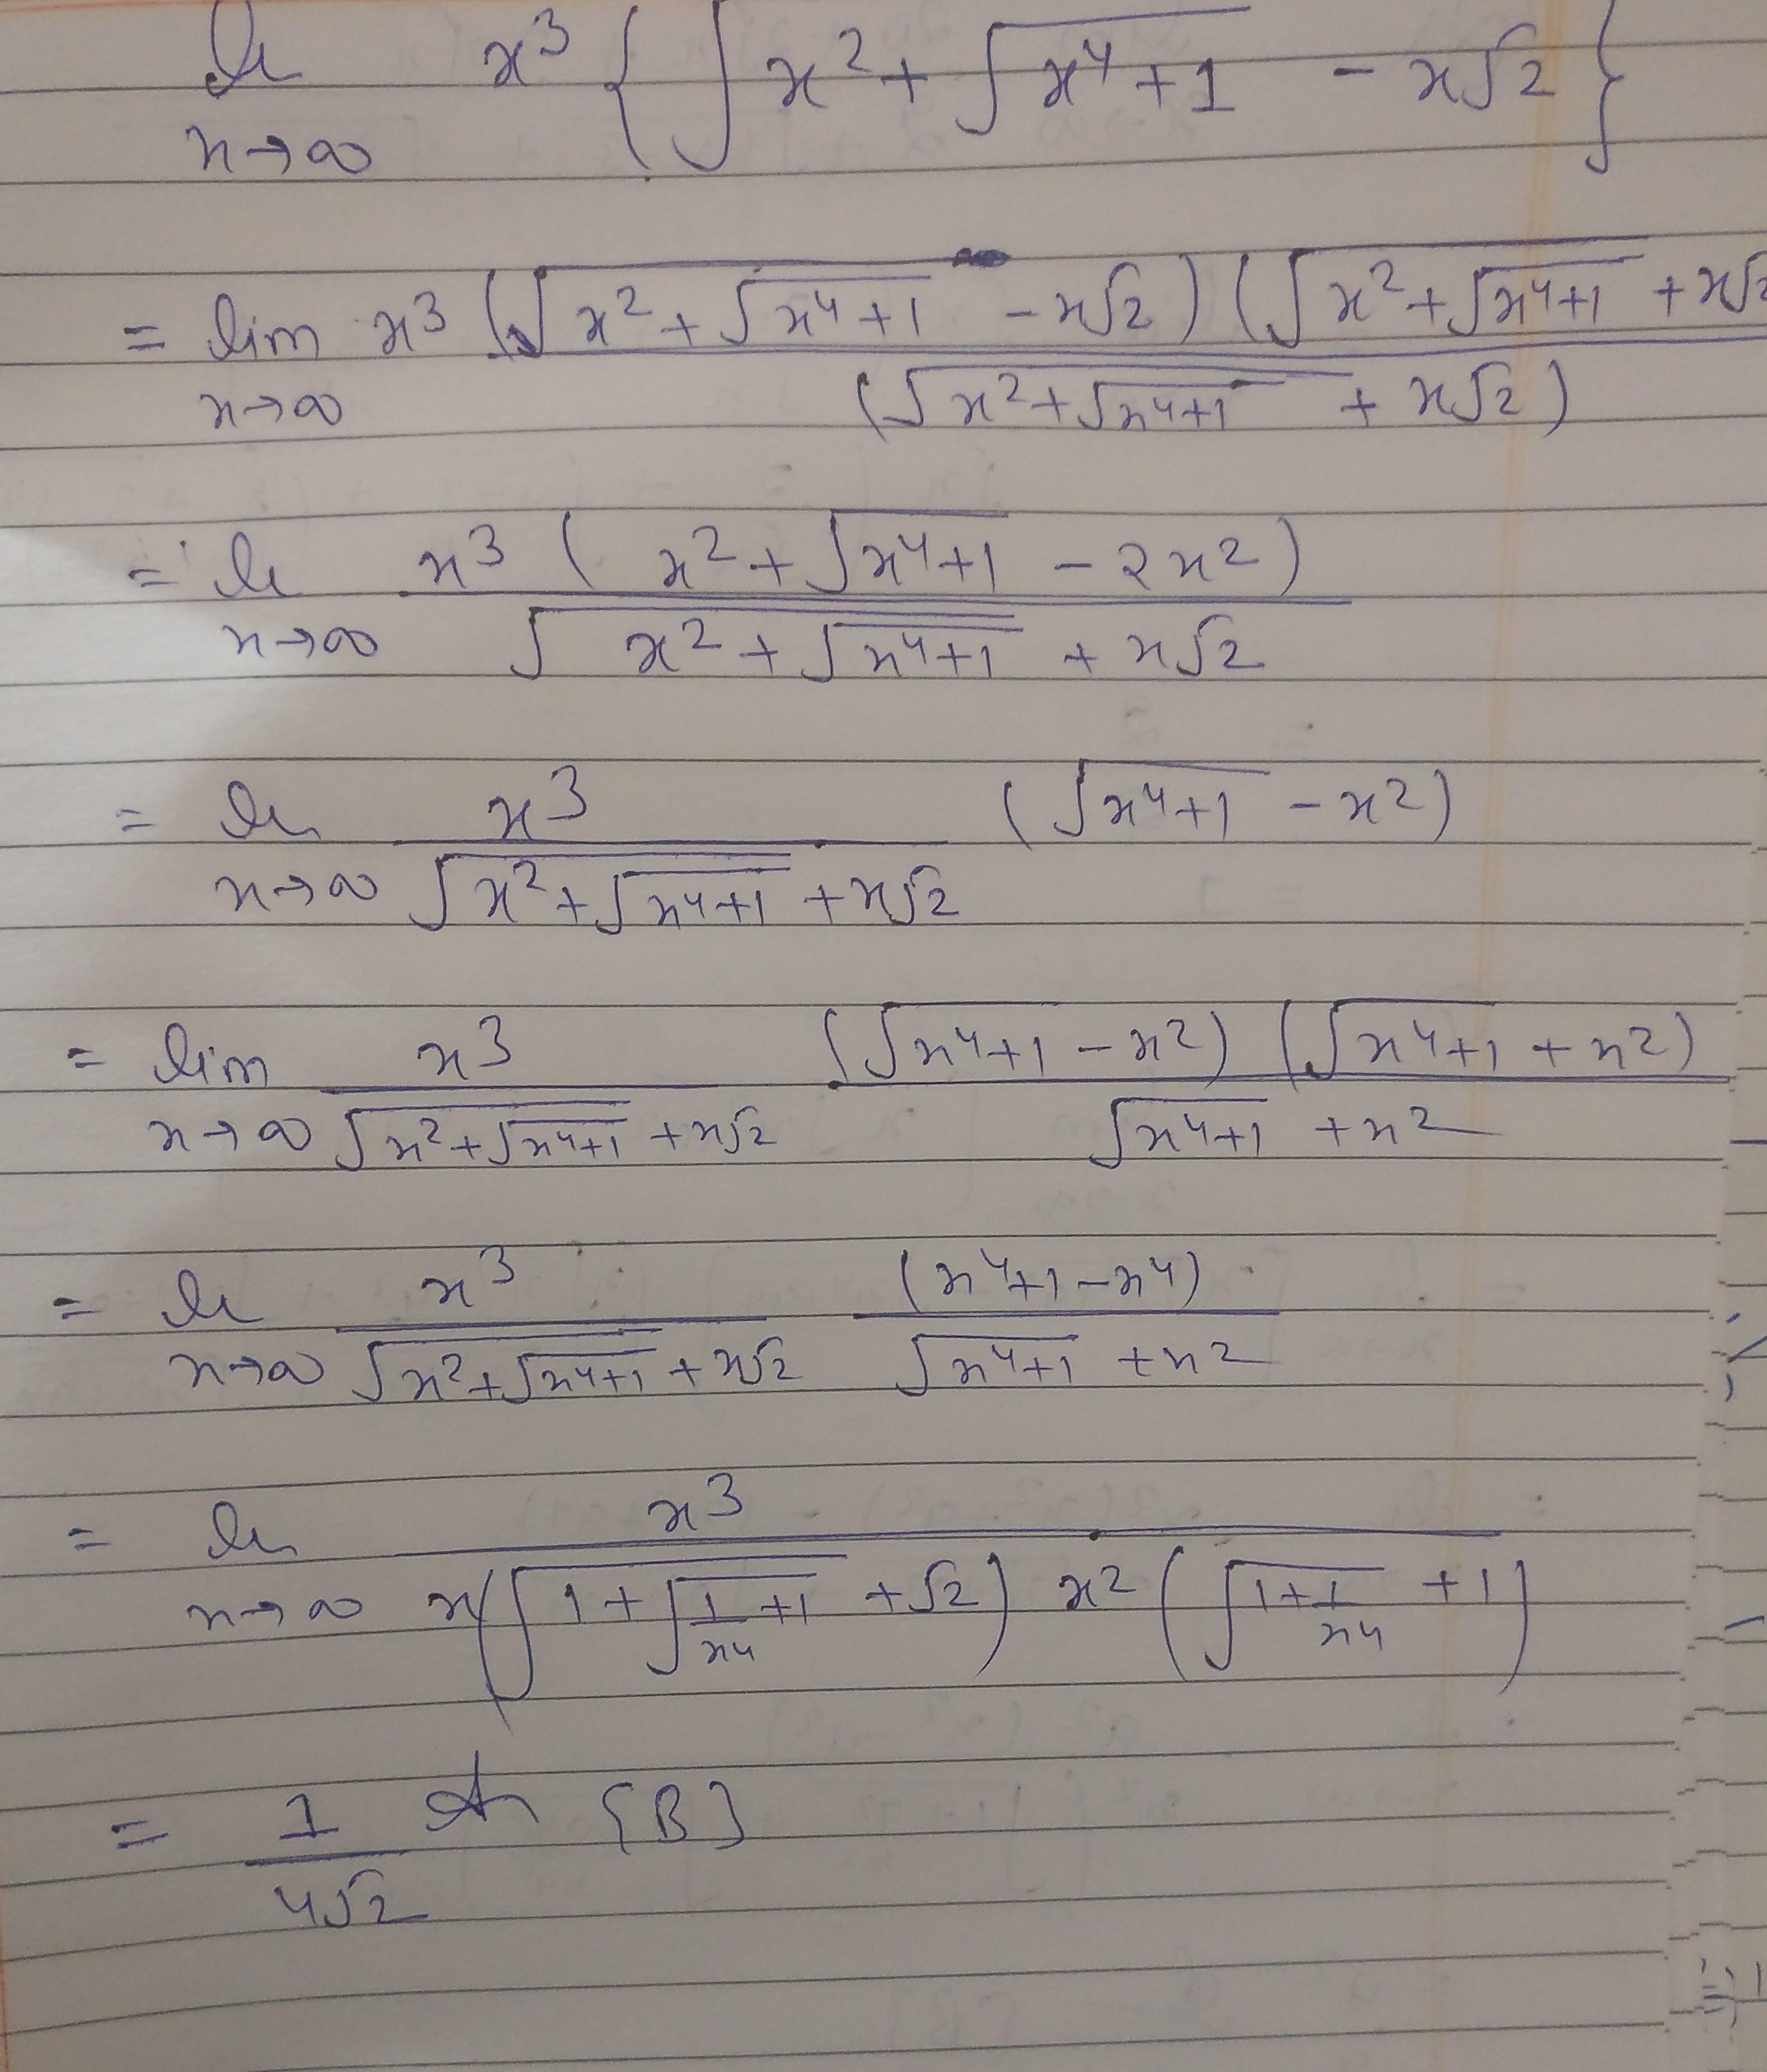 lim x→∞ x³ { √(x² + √(x⁴ + 1)) - x√2 }
= lim x→∞ x³ (√(x² + √(x⁴+1)) - x√2) (√(x² + √(x⁴+1)) + x√2) / (√(x² + √(x⁴+1)) + x√2)
= lim x→∞ x³ ( x² + √(x⁴+1) - 2x²) / (√(x² + √(x⁴+1)) + x√2)
= lim x→∞ x³ / (√(x² + √(x⁴+1)) + x√2) (√(x⁴+1) - x²)
= lim x→∞ x³ / (√(x² + √(x⁴+1)) + x√2) (√(x⁴+1) - x²) (√(x⁴+1) + x²) / (√(x⁴+1) + x²)
= lim x→∞ x³ / (√(x² + √(x⁴+1)) + x√2) (x⁴+1-x⁴) / (√(x⁴+1) + x²)
= lim x→∞ x³ / x(√(1 + √(1/x⁴ + 1)) + √2) x² (√(1 + 1/x⁴) + 1)
= 1 / 4√2 An [B]